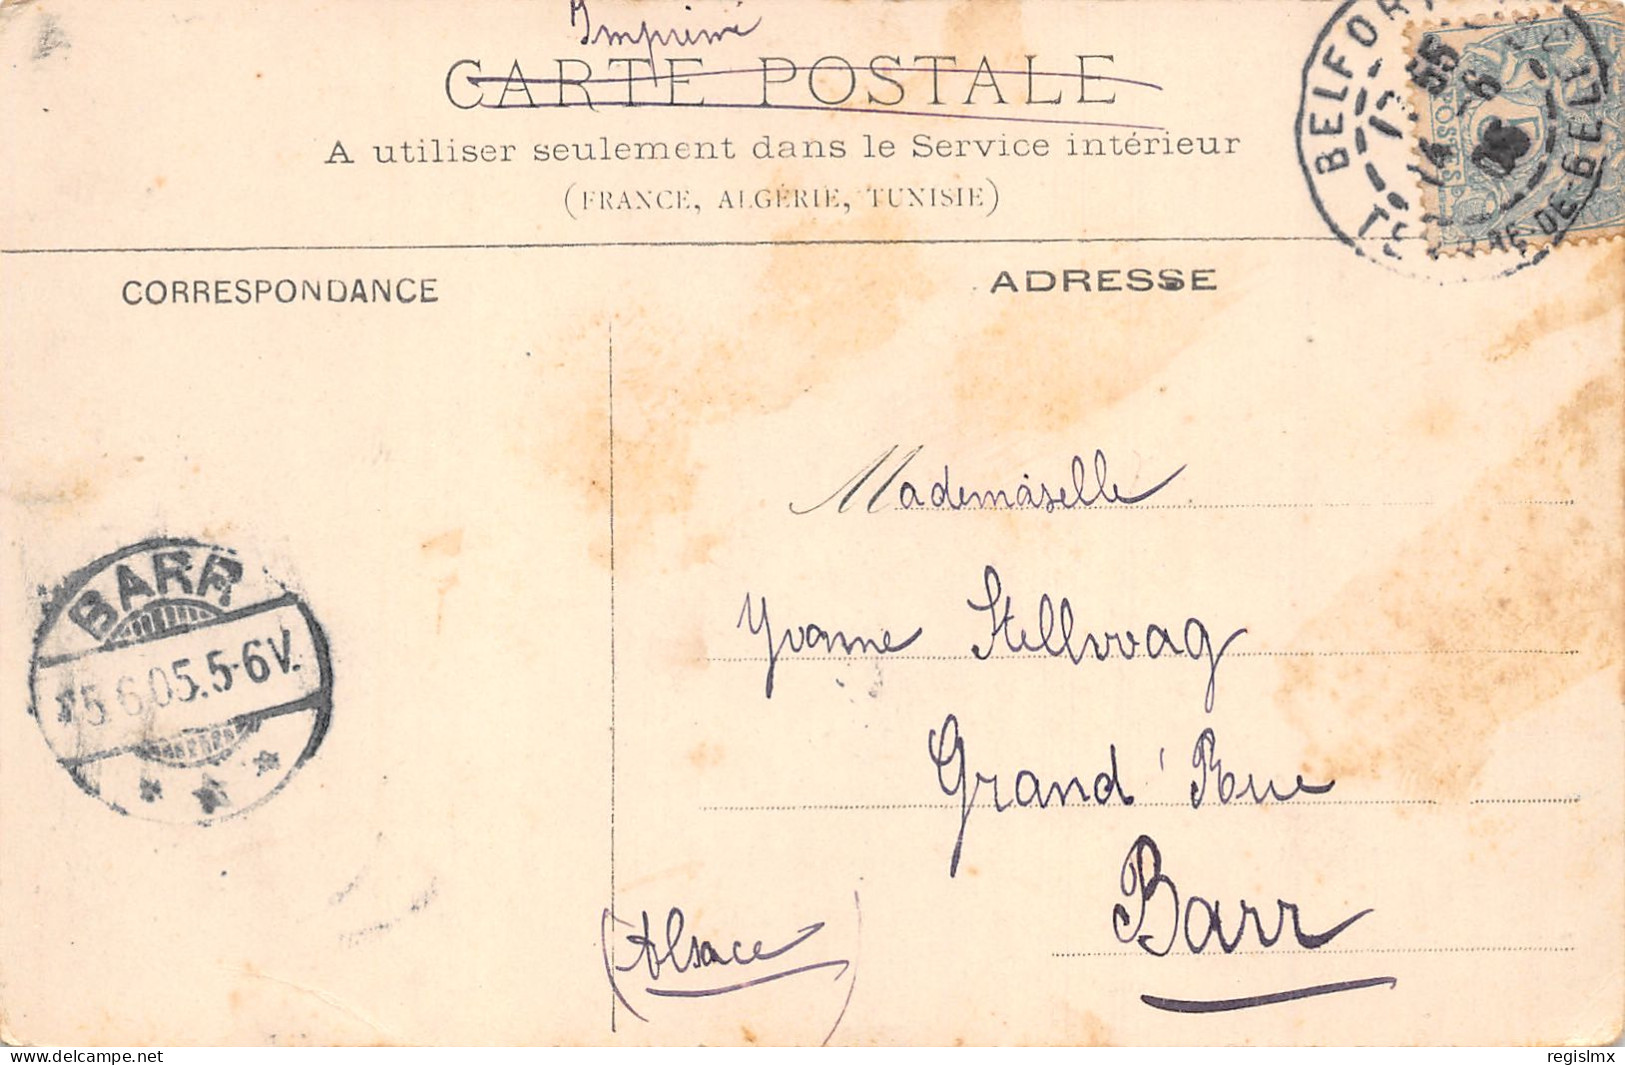 Imprimé
CARTE POSTALE
A utiliser seulement dans le Service intérieur
(FRANCE, ALGÉRIE, TUNISIE)
CORRESPONDANCE
ADRESSE
BELFORT
14 55
RE-DE-BELF
POSTES
Mademoiselle
Yvonne Stellwag
Grand'Rue
Barr
(Alsace)
BARR
5.6.05.5-6V.
delcampe.net
regislmx